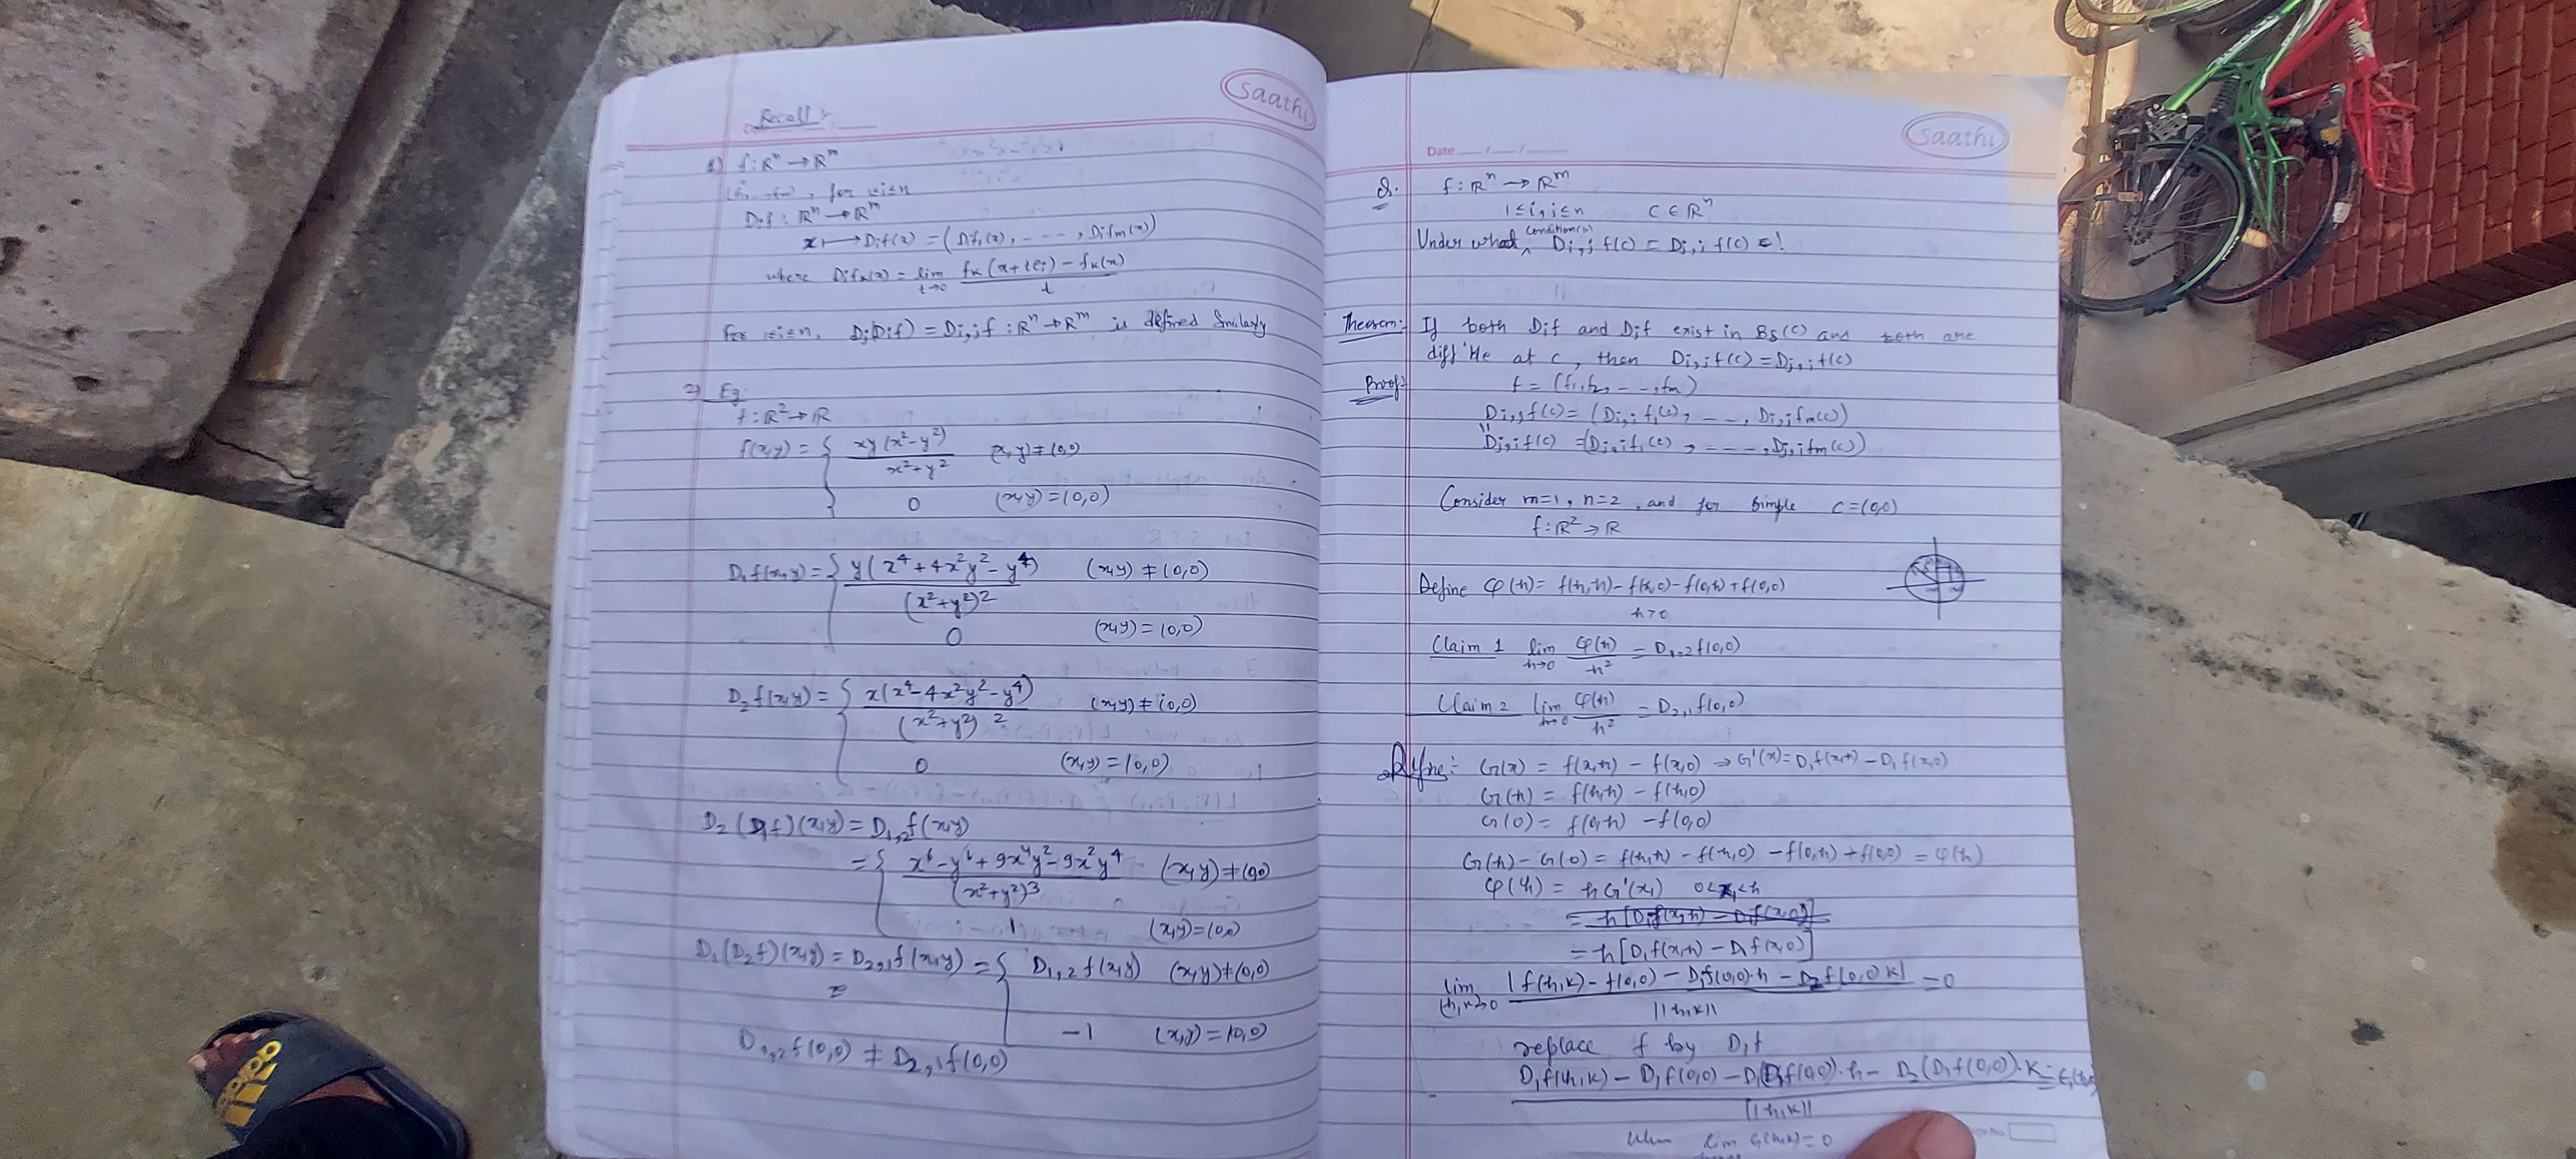 saathi
Recall :
1) f: Rⁿ → Rᵐ
(f₁, ..fm), for 1≤i≤n
Dif : Rⁿ → Rᵐ
x ↦ Dif(x) = (Dif₁(x), - - - -, Difm(x))
where Difₖ(x) = lim t→0 (fₖ(x+tei) - fₖ(x))/t
For 1≤i≤n, Dj(Dif) = Di,jf : Rⁿ → Rᵐ is defined Similarly
2) Eg.
f: R² → R
f(x,y) = { xy(x²-y²)/(x²+y²) (x,y) ≠ (0,0)
0 (x,y) = (0,0)
D₁f(x,y) = { y(x⁴+4x²y²-y⁴)/(x²+y²)² (x,y) ≠ (0,0)
0 (x,y) = (0,0)
D₂f(x,y) = { x(x⁴-4x²y²-y⁴)/(x²+y²)² (x,y) ≠ (0,0)
0 (x,y) = (0,0)
D₂(D₁f)(x,y) = D₁,₂f(x,y)
= { (x⁶-y⁶+9x⁴y²-9x²y⁴)/(x²+y²)³ (x,y) ≠ (0,0)
-1 (x,y) = (0,0)
D₁(D₂f)(x,y) = D₂,₁f(x,y) = { D₁,₂f(x,y) (x,y) ≠ (0,0)
=
-1 (x,y) = (0,0)
D₁,₂f(0,0) ≠ D₂,₁f(0,0)
saathi
Date __/__/____
Q. f: Rⁿ → Rᵐ
1≤i,j≤n c ∈ Rⁿ
Under what condition(s) Di,jf(c) = Dj,if(c)
Theorem:- If both Dif and Djf exist in Bδ(c) and both are
diff'ble at c, then Di,jf(c) = Dj,if(c)
Proof:- f = (f₁,f₂, - - -, fm)
Di,jf(c) = (Di,jf₁(c), - - -, Di,jfm(c))
||
Dj,if(c) = (Dj,if₁(c), - - - -, Dj,ifm(c))
Consider m=1, n=2, and for Simple c=(0,0)
f: R² → R
Define φ(h) = f(h,h) - f(h,0) - f(0,h) + f(0,0)
h>0
Claim 1 lim h→0 φ(h)/h² = D₁,₂f(0,0)
Claim 2 lim h→0 φ(h)/h² = D₂,₁f(0,0)
Define:- G(x) = f(x,h) - f(x,0) → G'(x) = D₁f(x,h) - D₁f(x,0)
G(h) = f(h,h) - f(h,0)
G(0) = f(0,h) - f(0,0)
G(h) - G(0) = f(h,h) - f(h,0) - f(0,h) + f(0,0) = φ(h)
φ(h) = hG'(x₁) 0<x₁<h
= h[D₁f(x₁,h) - D₁f(x₁,0)]
= h[D₁f(x₁,h) - D₁f(x₁,0)]
lim (h,k)→0 |f(h,k) - f(0,0) - D₁f(0,0)·h - D₂f(0,0)k| / ||h,k|| = 0
replace f by D₁f
D₁f(h,k) - D₁f(0,0) - D₁(D₁f(0,0))·h - D₂(D₁f(0,0))·k / ||h,k||
lim = 0